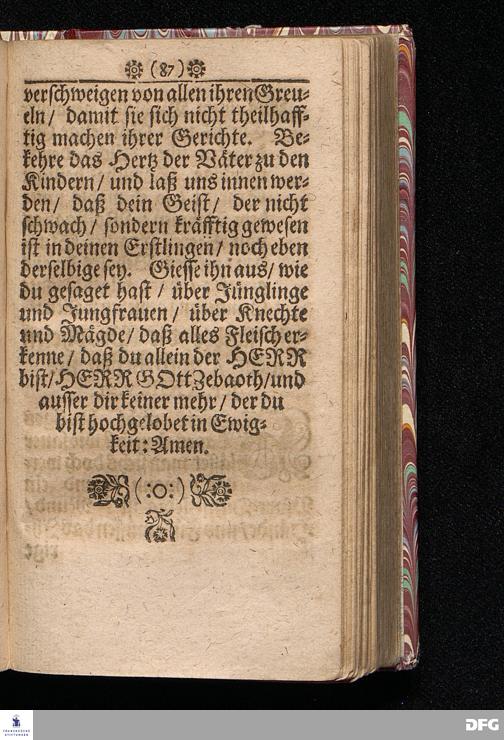 (87)
verschweigen von allen ihren Greu⸗
eln/ damit sie sich nicht theilhaff⸗
tig machen ihrer Gerichte. Be⸗
kehre das Hertz der Väter zu den
Kindern/ und laß uns innen wer⸗
den/ daß dein Geist/ der nicht
schwach/ sondern kräfftig gewesen
ist in deinen Erstlingen/ noch eben
derselbige sey. Giesse ihn aus/ wie
du gesaget hast/ über Jünglinge
und Jungfrauen/ über Knechte
und Mägde/ daß alles Fleisch er⸗
kenne/ daß du allein der HERR
bist/ HERR GOtt Zebaoth/ und
ausser dir keiner mehr/ der du
bist hochgelobet in Ewig⸗
keit: Amen.
(:o:)
FRANCKESCHE
STIFTUNGEN
DFG